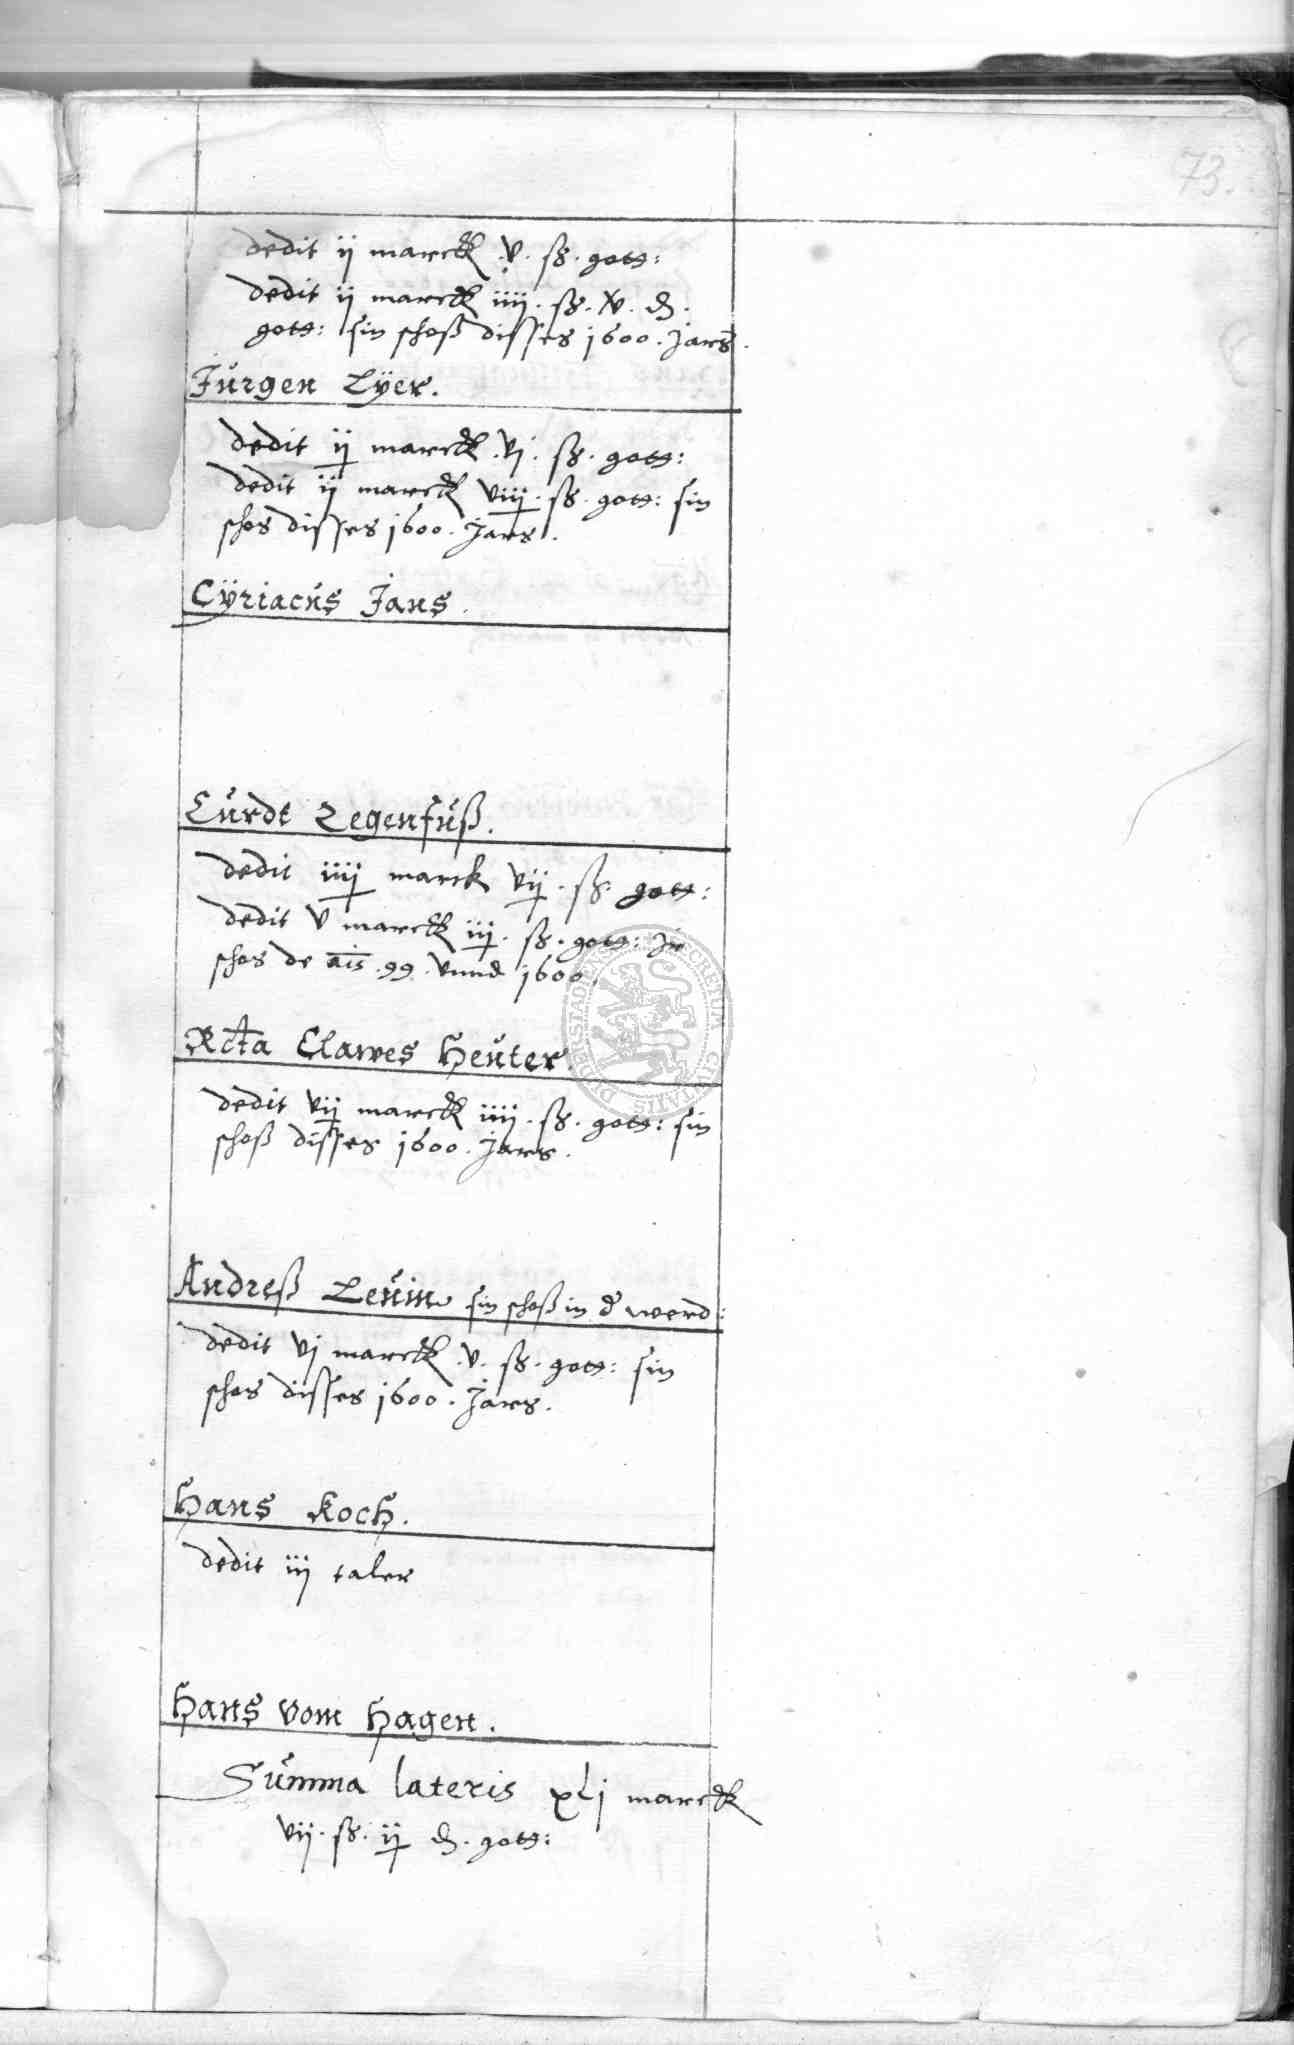 73.
dedit ij marck .v. ß. gott:
dedit ij marck iiij. ß. v. d.
gott: sin schoß disses 1600. Jars.
Jürgen Lÿer.
dedit ij marck .vj. ß. gott:
dedit ij marck viij. ß. gott: sin
schos disses 1600. Jars.
Cÿriacus Jans.
Curdt Zegenfuß.
dedit iiij marck vij. ß. gott:
dedit v marck iij. ß. gott: jr
schos de ais .99. vnnd 1600.
Rcta Clawes Heuter.
dedit vij marck iiij. ß. gott: sin
schoß disses 1600. Jars.
Andreß Leuin sin schoß in d werd:
dedit vj marck .v. ß. gott: sin
schos disses 1600. Jars.
Hans Koch.
dedit iij taler
Hans vom Hagen.
Summa lateris xlj marck
vij. ß. ij d. gott:
SECRETUM CIVITATIS DUDERSTADIENSIS